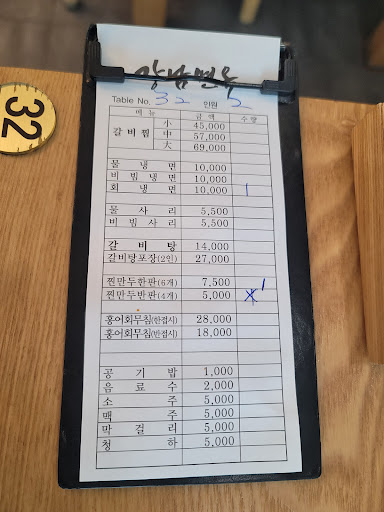 강남면옥
Table No. 32 인원 2
메뉴 금액 수량
갈비찜 小 45,000
中 57,000
大 69,000
물냉면 10,000
비빔냉면 10,000
회냉면 10,000 1
물사리 5,500
비빔사리 5,500
갈비탕 14,000
갈비탕포장(2인) 27,000
찐만두한판(6개) 7,500 1
찐만두반판(4개) 5,000
홍어회무침(한접시) 28,000
홍어회무침(반접시) 18,000
공기밥 1,000
음료수 2,000
소주 5,000
맥주 5,000
막걸리 5,000
청하 5,000
32